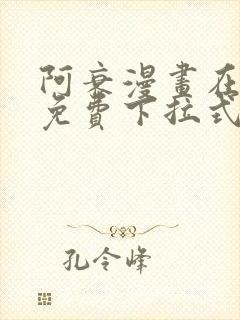 阿衰漫畫在
免費下拉式
孔令峰